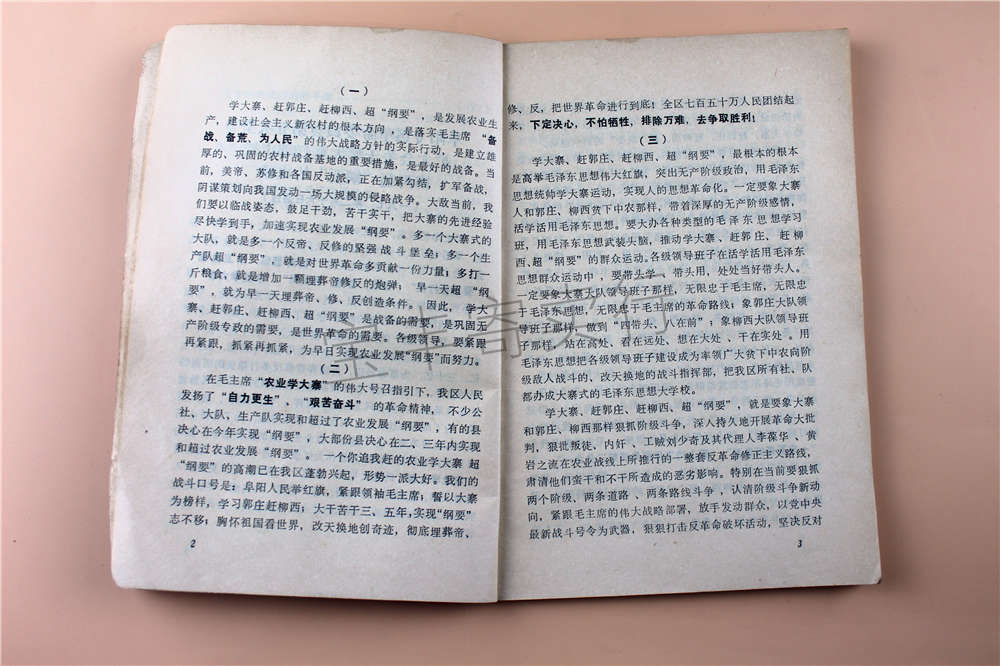 （一）
学大寨、赶郭庄、赶柳西、超“纲要”，是发展农业生
产，建设社会主义新农村的根本方向，是落实毛主席“备
战、备荒、为人民”的伟大战略方针的实际行动，是建立雄
厚的、巩固的农村战备基地的重要措施，是最好的战备。当
前，美帝、苏修和各国反动派，正在加紧勾结，扩军备战，
阴谋策划向我国发动一场大规模的侵略战争。大敌当前，我
们要以临战姿态，鼓足干劲，苦干实干，把大寨的先进经验
尽快学到手，加速实现农业发展“纲要”。多一个大寨式的
大队，就是多一个反帝、反修的坚强战斗堡垒；多一个生
产队超“纲要”，就是对世界革命多贡献一份力量；多打一
斤粮食，就是增加一颗埋葬帝修反的炮弹；早一天超“纲
要”，就为早一天埋葬帝、修、反创造条件。因此，学大
寨、赶郭庄、赶柳西、超“纲要”是战备的需要，是巩固无
产阶级专政的需要，是世界革命的需要。各级领导，要紧跟
再紧跟，抓紧再抓紧，为早日实现农业发展“纲要”而努力。
（二）
在毛主席“农业学大寨”的伟大号召指引下，我区人民
发扬了“自力更生”、“艰苦奋斗”的革命精神，不少公
社、大队、生产队实现和超过了农业发展“纲要”，有的县
决心在今年实现“纲要”，大部份县决心在二、三年内实现
和超过农业发展“纲要”。一个你追我赶的农业学大寨 超
“纲要”的高潮已在我区蓬勃兴起，形势一派大好。我们的
战斗口号是：阜阳人民举红旗，紧跟领袖毛主席；誓以大寨
为榜样，学习郭庄赶柳西；大干苦干三、五年，实现“纲要”
志不移；胸怀祖国看世界，改天换地创奇迹，彻底埋葬帝、
2
修、反，把世界革命进行到底！全区七百五十万人民团结起
来，下定决心，不怕牺牲，排除万难，去争取胜利！
（三）
学大寨、赶郭庄、赶柳西、超“纲要”，最根本的根本
是高举毛泽东思想伟大红旗，突出无产阶级政治，用毛泽东
思想统帅学大寨运动，实现人的思想革命化。一定要象大寨
人和郭庄、柳西贫下中农那样，带着深厚的无产阶级感情，
活学活用毛泽东思想。要大办各种类型的毛泽东思想学习
班，用毛泽东思想武装头脑，推动学大寨、赶郭庄、赶柳
西、超“纲要”的群众运动。各级领导班子在活学活用毛泽东
思想群众运动中，要带头学、带头用，处处当好带头人。
一定要象大寨大队领导班子那样，无限忠于毛主席，无限忠
于毛泽东思想，无限忠于毛主席的革命路线；象郭庄大队领
导班子那样，做到“四带头、人在前”；象柳西大队领导班
子那样，站在高处、看在远处、想在大处、干在实处。用
毛泽东思想把各级领导班子建设成为率领广大贫下中农向阶
级敌人战斗的、改天换地的战斗指挥部，把我区所有社、队
都办成大寨式的毛泽东思想大学校。
学大寨、赶郭庄、赶柳西、超“纲要”，就是要象大寨
和郭庄、柳西那样狠抓阶级斗争，深入持久地开展革命大批
判，狠批叛徒、内奸、工贼刘少奇及其代理人李葆华、黄
岩之流在农业战线上所推行的一整套反革命修正主义路线，
肃清他们蛮干和不干所造成的恶劣影响。特别在当前要狠抓
两个阶级，两条道路、两条路线斗争，认清阶级斗争新动
向，紧跟毛主席的伟大战略部署，放手发动群众，以党中央
最新战斗号令为武器，狠狠打击反革命破坏活动，坚决反对
3